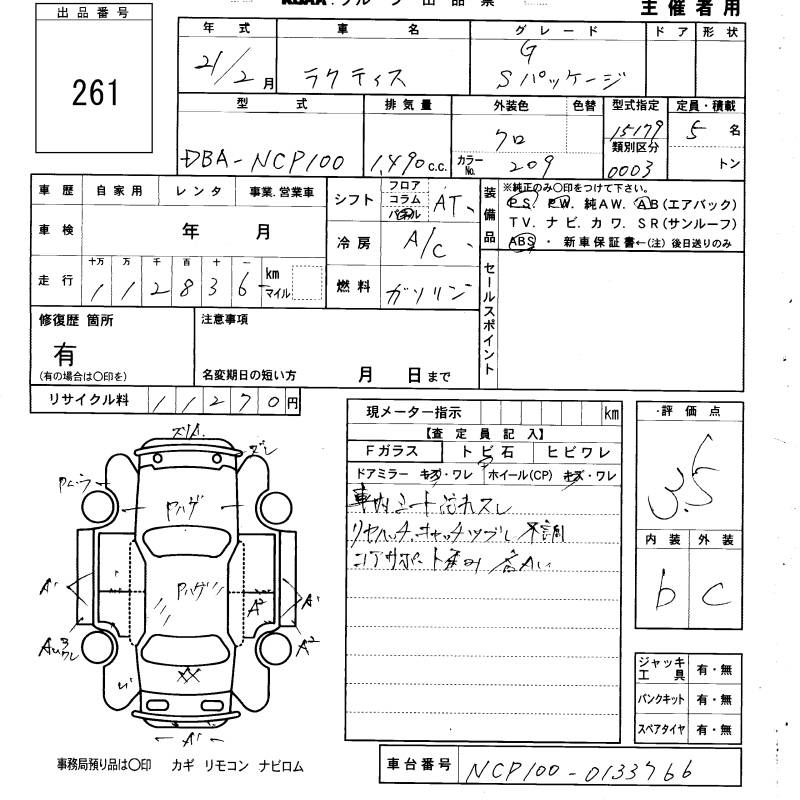 主催者用
出品番号
261
年式 車名 グレード ドア 形状
21/2月 ラクティス G Sパッケージ
型式 排気量 外装色 色替 型式指定 定員・積載
DBA-NCP100 1,490c.c. クロ カラーNo. 209 15179 5名
類別区分 0003 トン
車歴 自家用 レンタ 事業.営業車
シフト フロア コラム パネル AT
装備品 ※純正のみ〇印をつけて下さい。
PS. PW. 純AW. AB(エアバック)
TV. ナビ. カワ. SR(サンルーフ)
ABS ・ 新車保証書←(注) 後日送りのみ
車検 年 月
冷房 A/C
走行 十万 万 千 百 十 一
112836 km マイル
燃料 ガソリン
セールスポイント
修復歴 箇所 注意事項
有
(有の場合は〇印を) 名変期日の短い方 月 日まで
リサイクル料 11270円
現メーター指示 km
【査定員記入】
Fガラス トビ石 ヒビワレ
ドアミラー キズ・ワレ ホイール(CP) キズ・ワレ
車内シート汚れスレ
リヤハッチ.キャッチツブレ 不調
コアサポート
・評価点
3.5
内装 外装
b C
ズレ
ヤハゲ
Pハゲ
A'
A²
A'
A²
ワレ
XX
A'
ジャッキ工具 有・無
パンクキット 有・無
スペアタイヤ 有・無
事務局預り品は〇印 カギ リモコン ナビロム
車台番号 NCP100-0133766